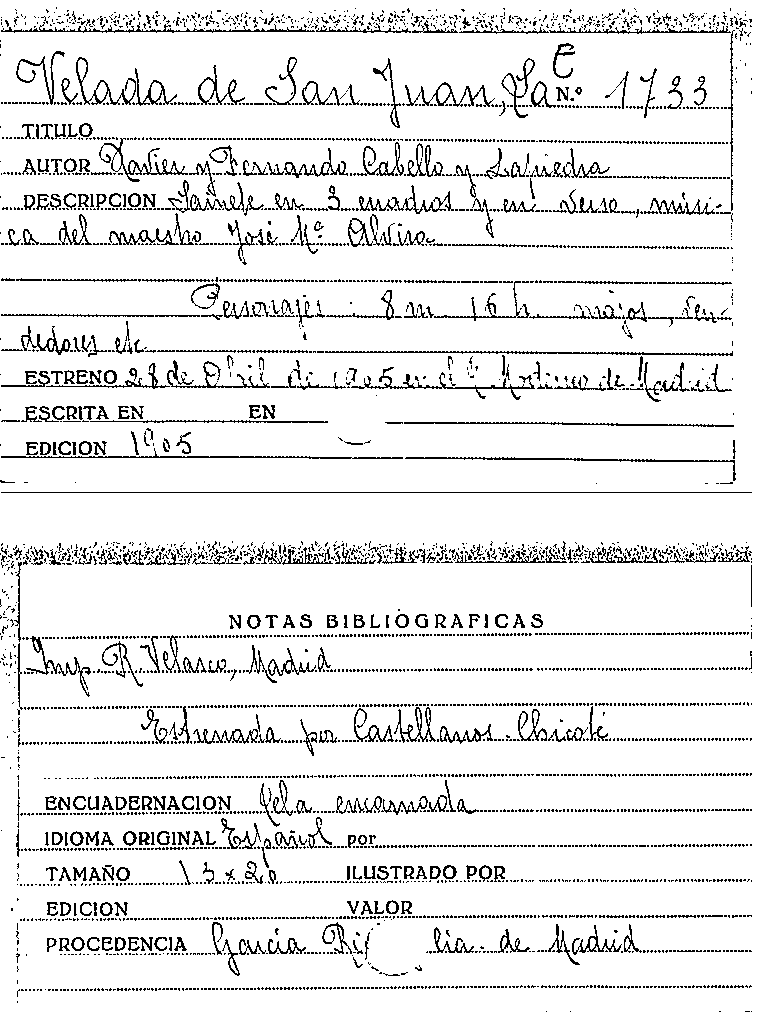 E
Velada de San Juan, La N.º 1733
TITULO
AUTOR Xavier y Fernando Cabello y Lapiedra
DESCRIPCION Sainete en 3 cuadros y en verso, músi-
ca del maestro José Mª Alvira
Personajes : 8 m 16 h. majos, ven-
dedores etc.
ESTRENO 28 de Abril de 1905 en el Moderno de Madrid
ESCRITA EN EN
EDICION 1905
NOTAS BIBLIOGRAFICAS
Imp. R. Velasco, Madrid
Estrenada por Castellanos. Chicote
ENCUADERNACION tela encarnada
IDIOMA ORIGINAL Español por
TAMAÑO 13 x 20 ILUSTRADO POR
EDICION VALOR
PROCEDENCIA García de Madrid